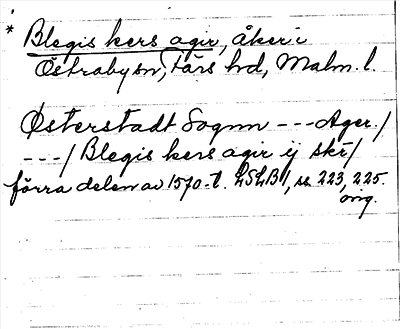 * Blegis kers agir, åker i
Östraby sn, Färs hd, Malm. l.
Østerstadt Sognn --- Ager. /
--- / Blegis kers agir ij skr /
förra delen av 1570-t. LSLB 1, ss 223, 225.
orig.